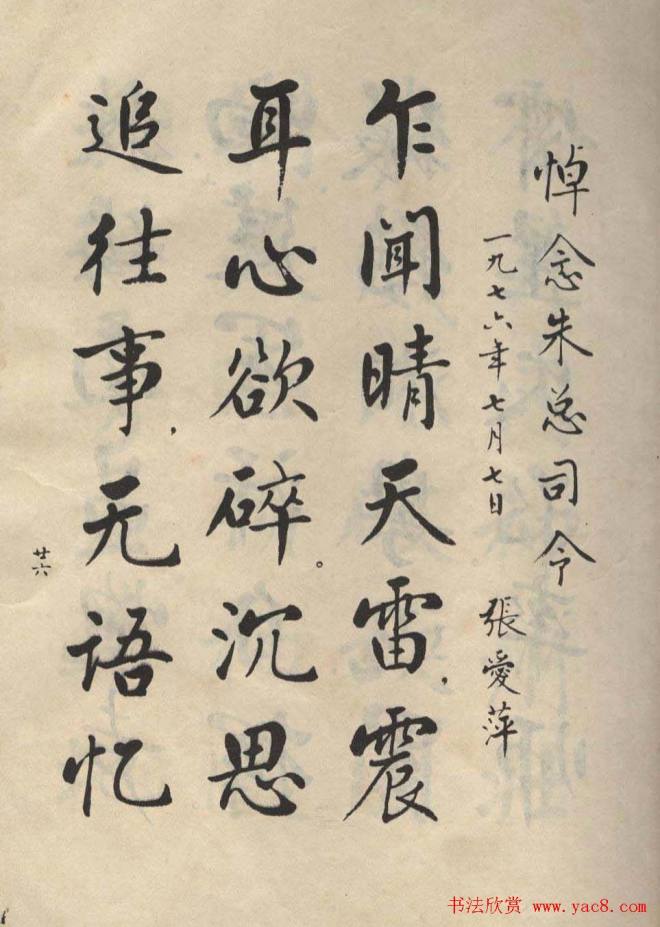 悼念朱总司令
一九七六年七月七日 張愛萍
乍闻晴天雷，震
耳心欲碎。沉思
追往事，无语忆
廿六
书法欣赏 www.yac8.com